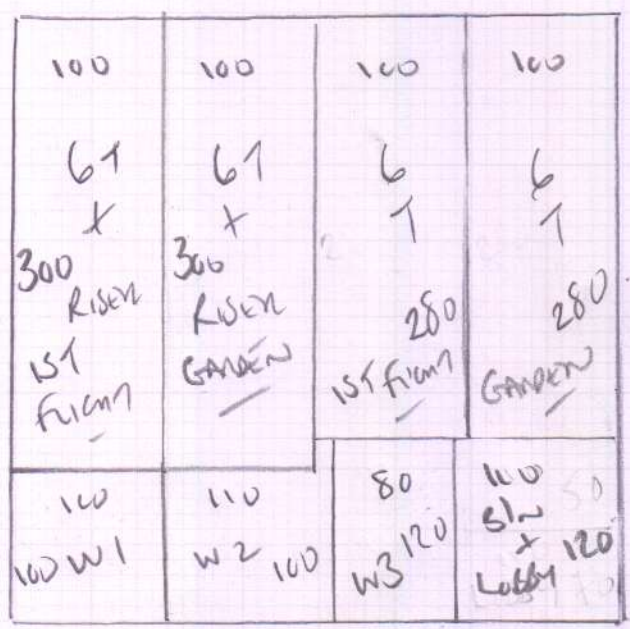 100
6T
+
300
RISER
1ST
FLIGHT
100
6T
+
300
RISER
GARDEN
100
6
T
280
1ST FLIGHT
100
6
T
280
GARDEN
100
100 W1
110
W2 100
80
W3 120
100
+ 120
LOBBY